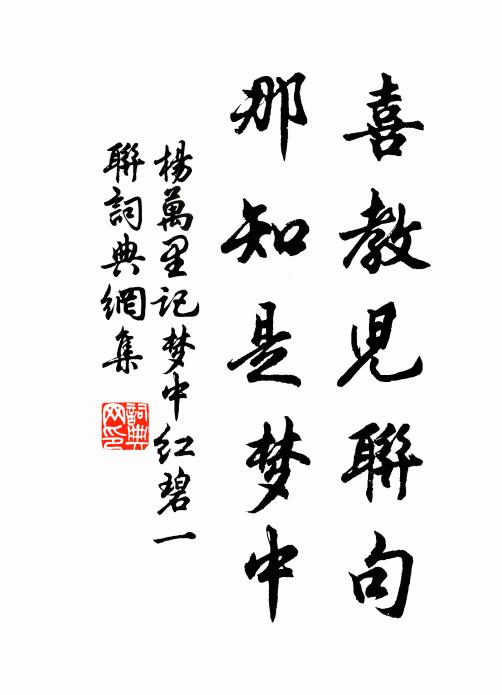 喜教児聯句
那知是梦中
楊萬里记梦中红碧一
聯詞典網集
詞典网印